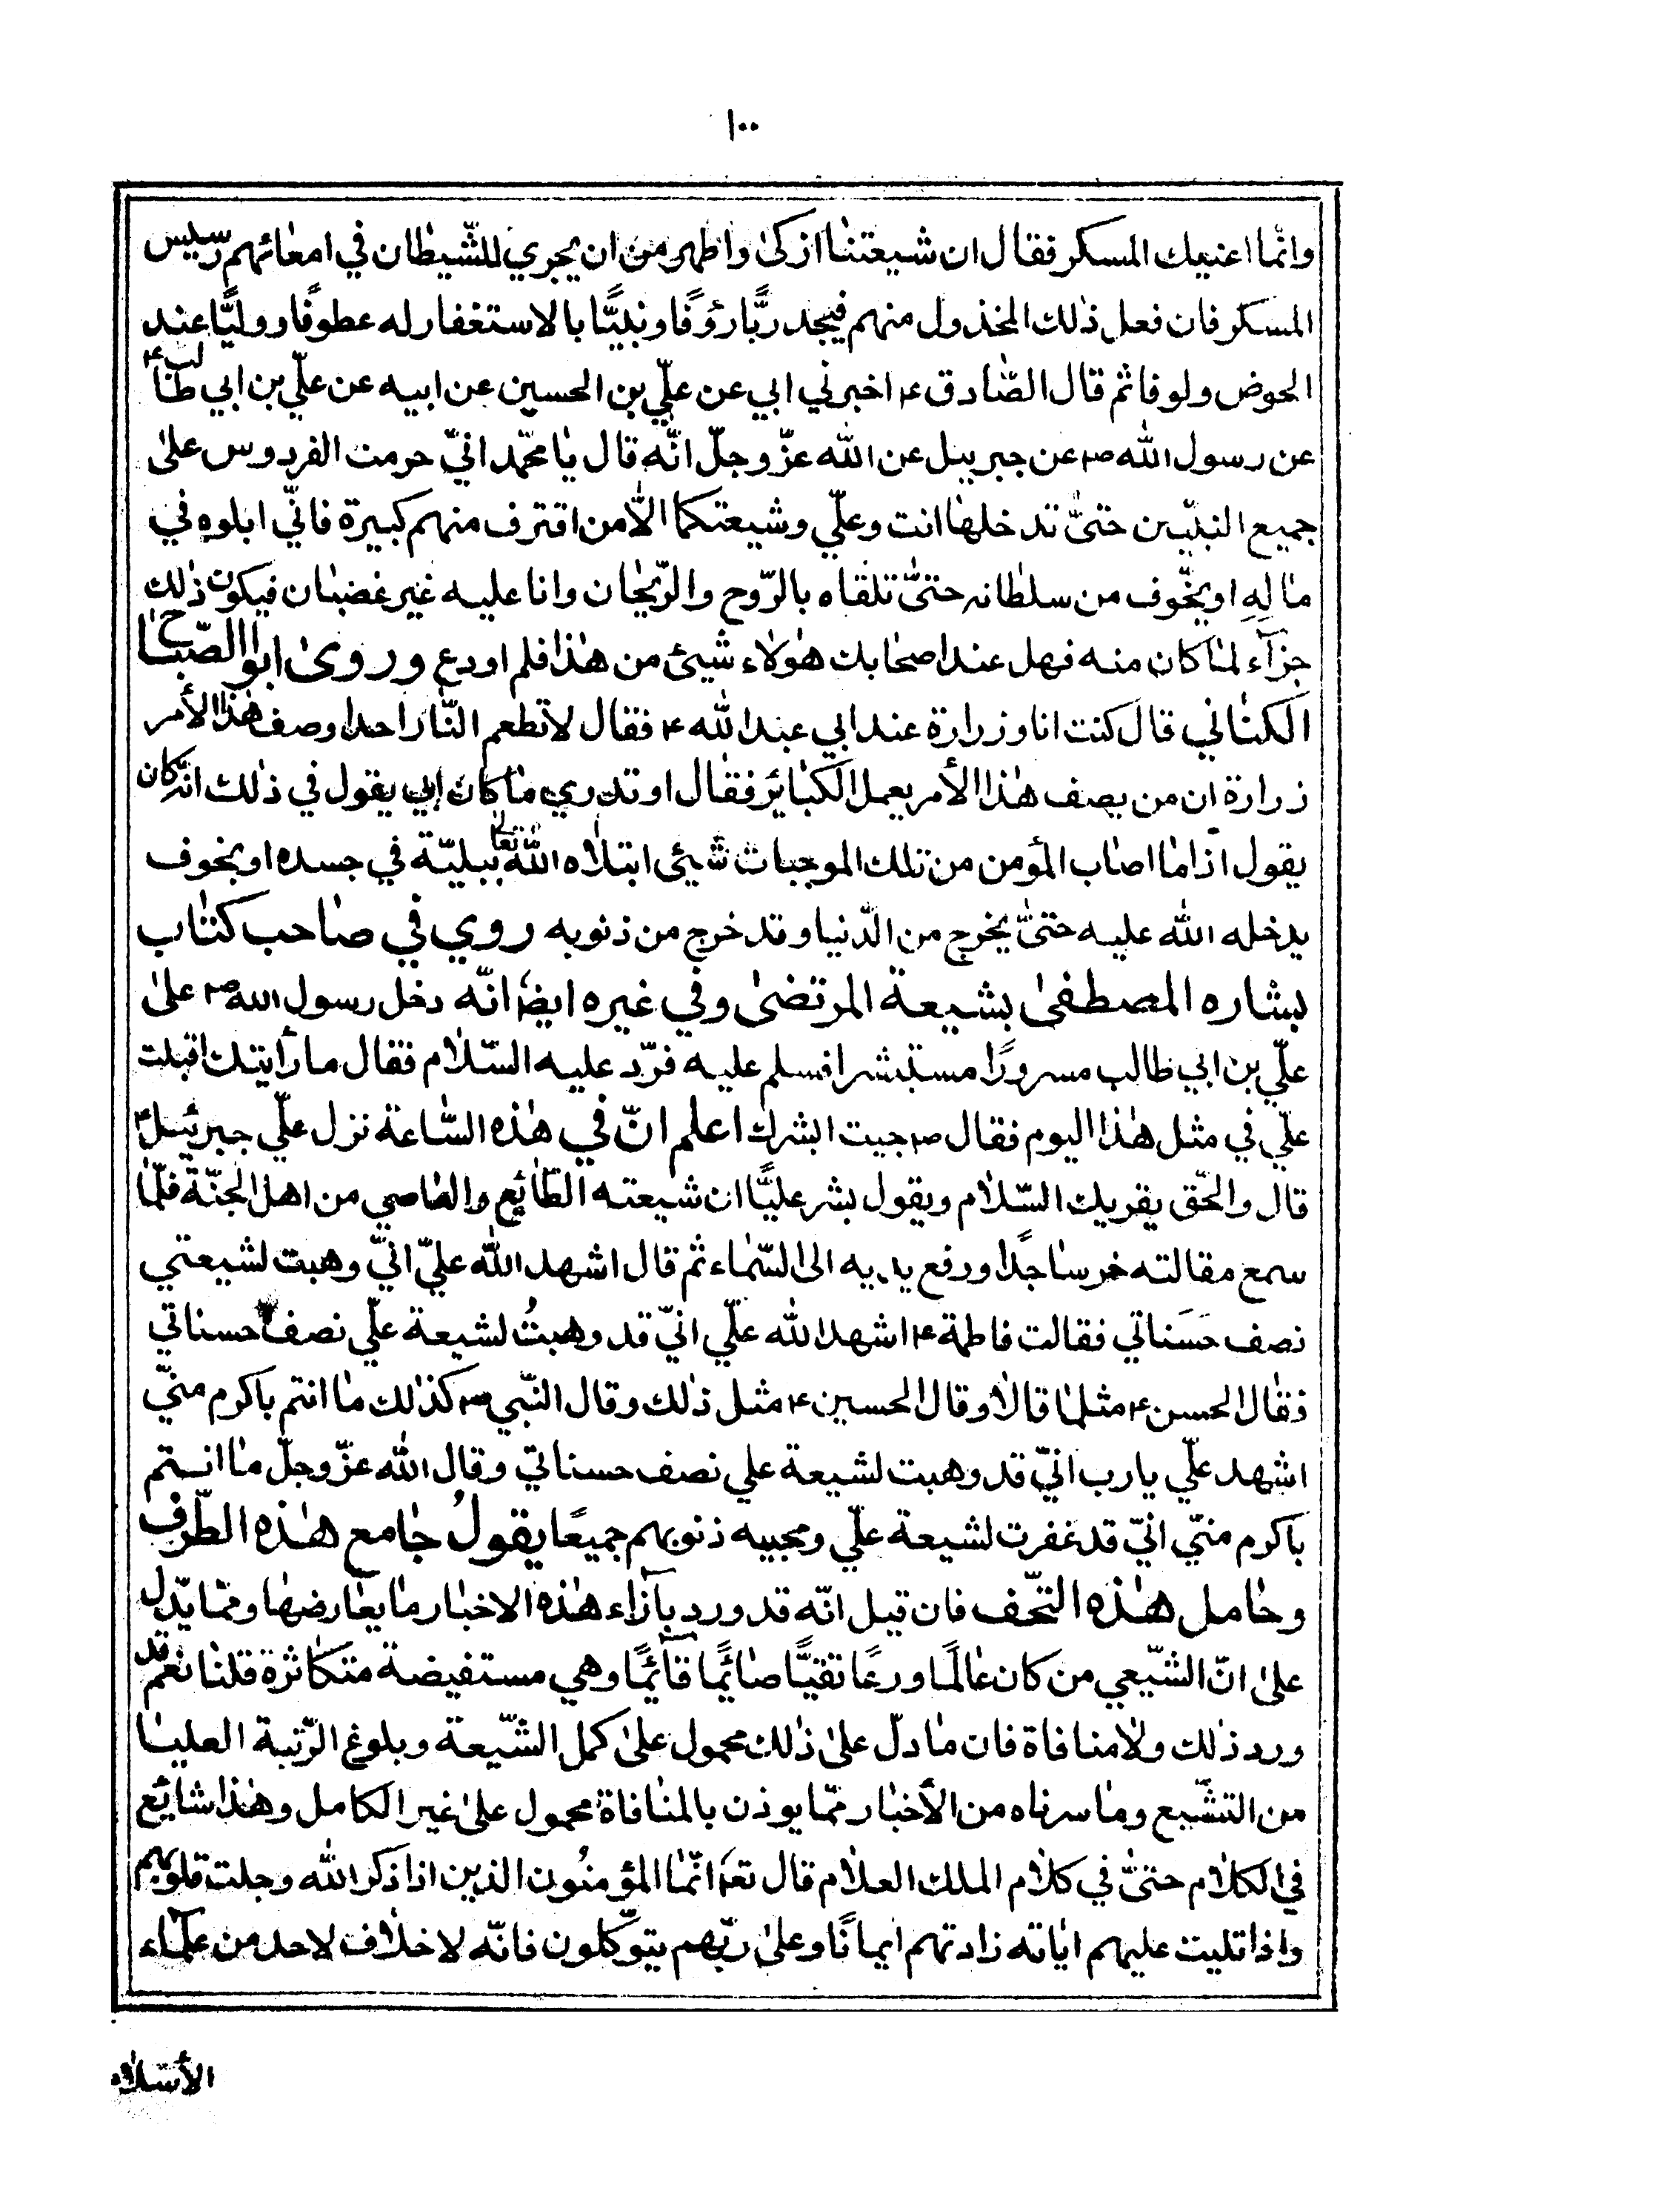 ١٠٠
وانّما اعنيك المسكر فقال ان شيعتنا ازكى واطهر من ان يجري للشّيطان في امعائهم رسيس
المسكر فان فعل ذلك المخذول منهم فيجد ربًّا رؤفًا ونبيًّا بالاستغفار له عطوفًا ووليًّا عند
الحوض ولوفا ثم قال الصّادق ع اخبرني ابي عن عليّ بن الحسين عن ابيه عن عليّ بن ابي طالب ع
عن رسول الله ص عن جبرييل عن الله عزّ وجلّ انّه قال يا محمّد انّي حرمت الفردوس على
جميع النبيّين حتىّ تدخلها انت وعليّ وشيعتكما الاّ من اقترف منهم كبيرة فانّي ابلوه في
مالِهِ او بخّوف من سلطانه حتىّ تلقاه بالرّوح والرّيحان وانا عليه غير غضبان فيكون ذلك
جزآء لما كان منه فهل عند اصحابك هؤلاء شيئ من هذا فلم او دع وروى ابوا الصّباح
الكناني قال كنت انا وزرارة عند ابي عبد الله ع فقال لا تطعم النّار احدا وصف هذا الأمر
زرارة ان من يصف هذا الأمر يعمل الكبائر فقال او تدري ما كان ابي يقول في ذلك انّه كان
يقول اذا ما اصاب المؤمن من تلك الموجبات شيئى ابتلاه الله تعالى ببليّة في جسده او بخوف
يدخله الله عليه حتىّ يخرج من الدّنيا وقد خرج من ذنوبه روي في صاحب كتاب
بشاره المصطفى بشيعة المرتضى وفي غيره ايضا انّه دخل رسول الله ص على
عليّ بن ابي طالب مسرورًا مستبشرا فسلم عليه فرّد عليه السّلام فقال ما رأيتك اقبلت
عليّ في مثل هذا اليوم فقال ص جيت ابشرك اعلم انّ في هذه السّاعة نزل عليّ جبرئيل ع
قال والحّق يقريك السّلام ويقول بشر عليًّا ان شيعته الطّائع والعاصي من اهل الجنّة فلمّا
سمع مقالته خر ساجدًا ورفع يديه الى السّماء ثم قال اشهد الله عليّ انّي وهبت لشيعتي
نصف حَسَناتي فقالت فاطمة ع اشهد الله عليّ انّي قد وهبتُ لشيعة عليّ نصف حسناتي
فقال الحسن ع مثلما قالا وقال الحسين ع مثل ذلك وقال النّبي ص كذلك ما انتم باكرم منيّ
اشهد عليّ يا رب انّي قد وهبت لشيعة علي نصف حسناتي وقال الله عزّ وجلّ ما انتم
باكرم منيّ انّي قد غفرت لشيعة عليّ ومحبيه ذنوبهم جميعًا يقولُ جامع هذه الطّرف
وحامل هذه التّحف فان قيل انّه قد ورد بآزاء هذه الاخبار ما يعارضها وممّا يدّل
على انّ الشّيعي من كان عالمًا ورعًا تقيًّا صائمًا قآئمًا وهي مستفيضة متكاثرة قلنا نعم قد
ورد ذلك ولا منافاة فان ما دلّ على ذلك محمول على كمل الشّيعة وبلوغ الرّتبة العليا
من التشّيع وما سرناه من الأخبار ممّا يوذن بالمنافاة محمول على غير الكامل وهذا شائع
في الكلام حتىّ في كلام الملك العلام قال تع انّما المؤمنُون الذين اذا ذكر الله وجلت قلوبهم
واذا تليت عليهم اياته زادتهم ايمانًا وعلى ربّهم يتوّكلون فانّه لا خلاف لاحد من علمآء
الأسلام